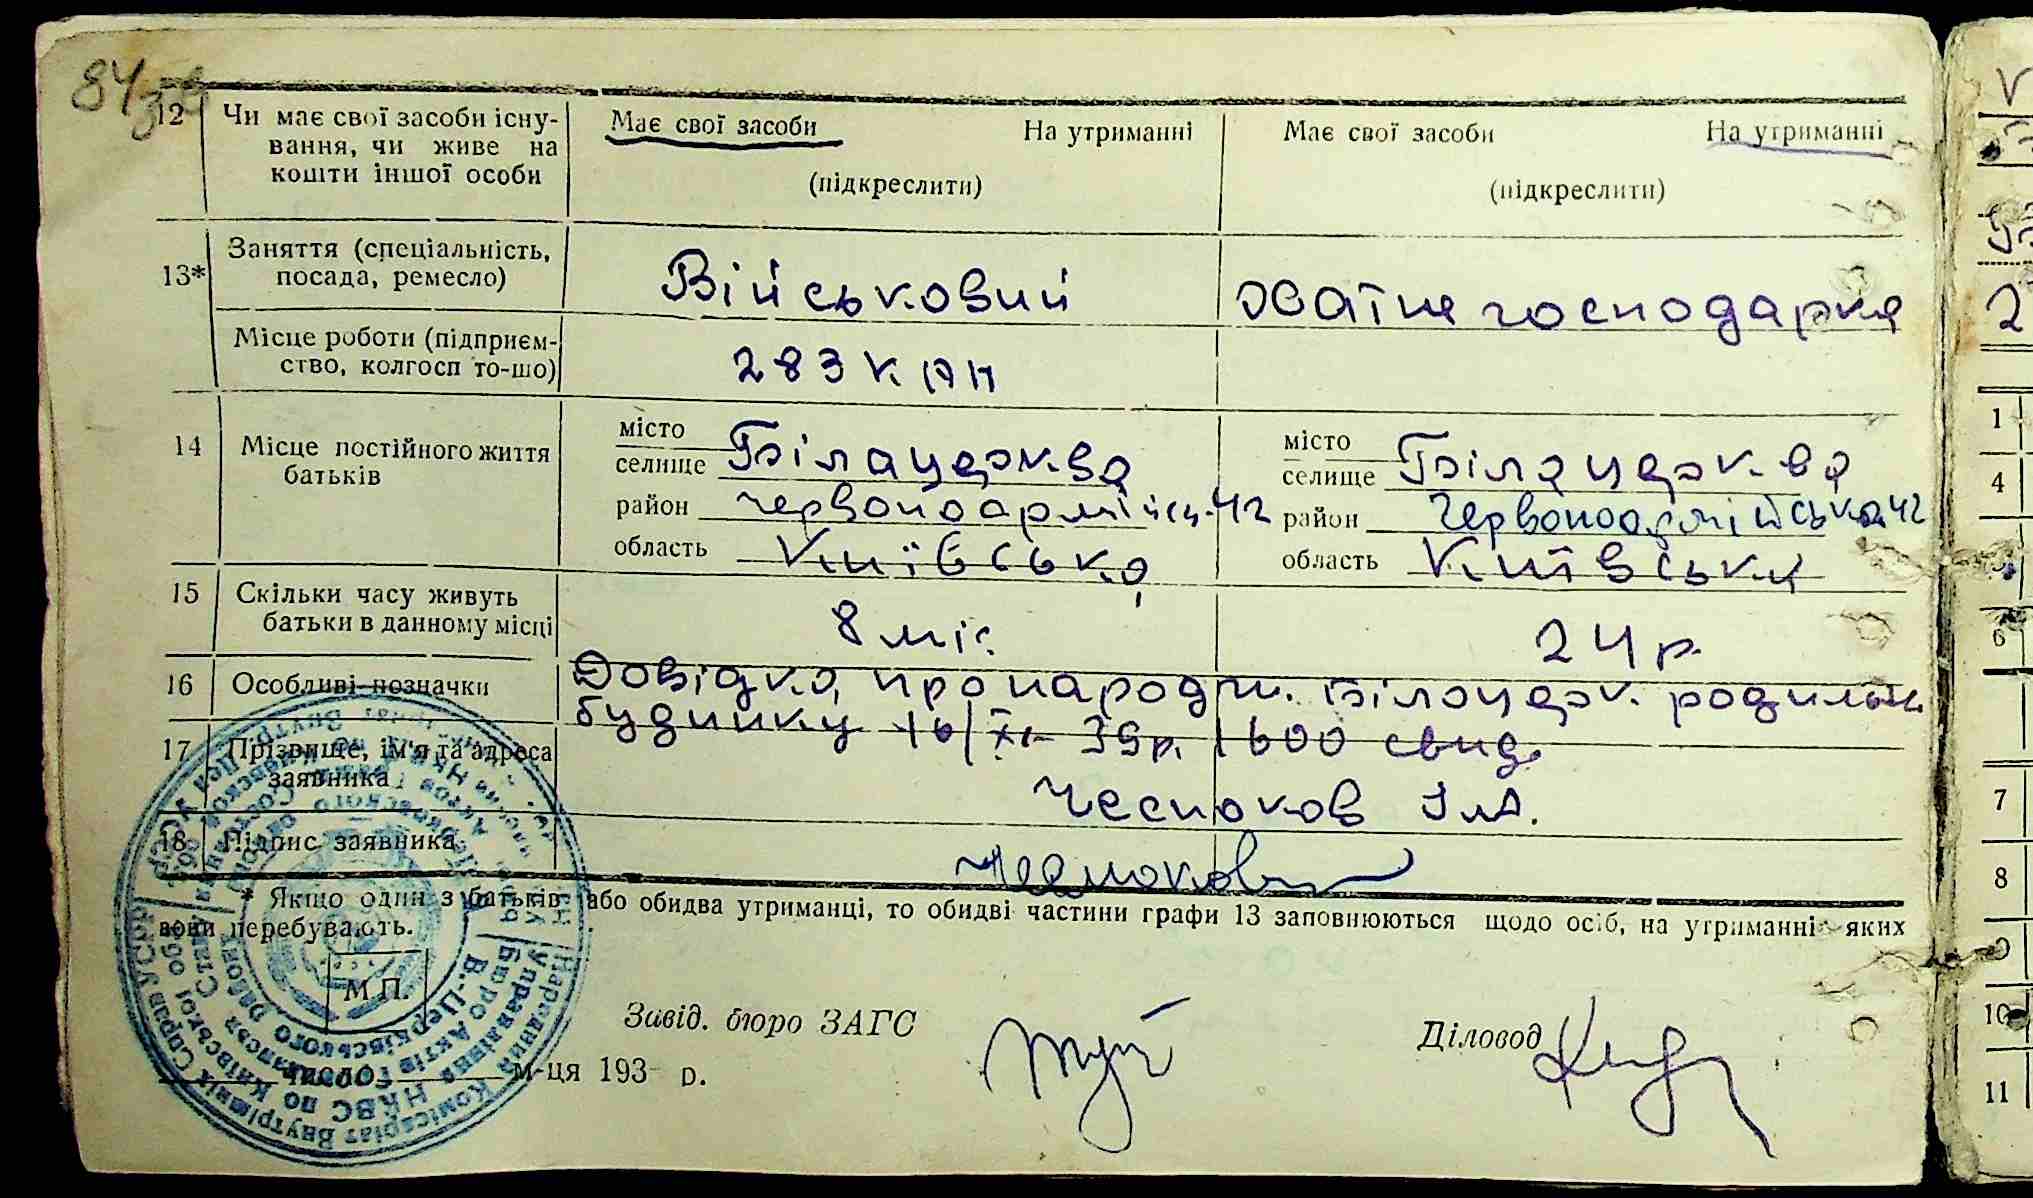 84
12 Чи має свої засоби існу- Має свої засоби На утриманні Має свої засоби На утриманні
вання, чи живе на
кошти іншої особи (підкреслити) (підкреслити)
13* Заняття (спеціальність,
посада, ремесло) Військовий хатня господарка
Місце роботи (підприєм-
ство, колгосп то-що) 283 к
14 Місце постійного життя
батьків
місто
селище Білацерква
район червоноармійськ 42
область Київська
місто
селище Білацерква
район Червоноармійська 42
область Київська
15 Скільки часу живуть
батьки в данному місці 8 міс. 24 р.
16 Особливі позначки Довідка про народж. Білоцерк. родильн.
будинку 16/XI 39р. 1600 свид.
17 Прізвище, ім'я та адреса
заявника Чесноков
18 Підпис заявника
* Якщо один з батьків або обидва утриманці, то обидві частини графи 13 заповнюються щодо осіб, на утриманні яких
вони перебувають.
М.П.
Завід. бюро ЗАГС Діловод
число м-ця 193 р.
Народний Комісаріат Внутрішніх Справ УСРР
Управління НКВС по Київській обл.
Бюро Актів
Б.-Церківського
1
4
6
7
8
9
10
11